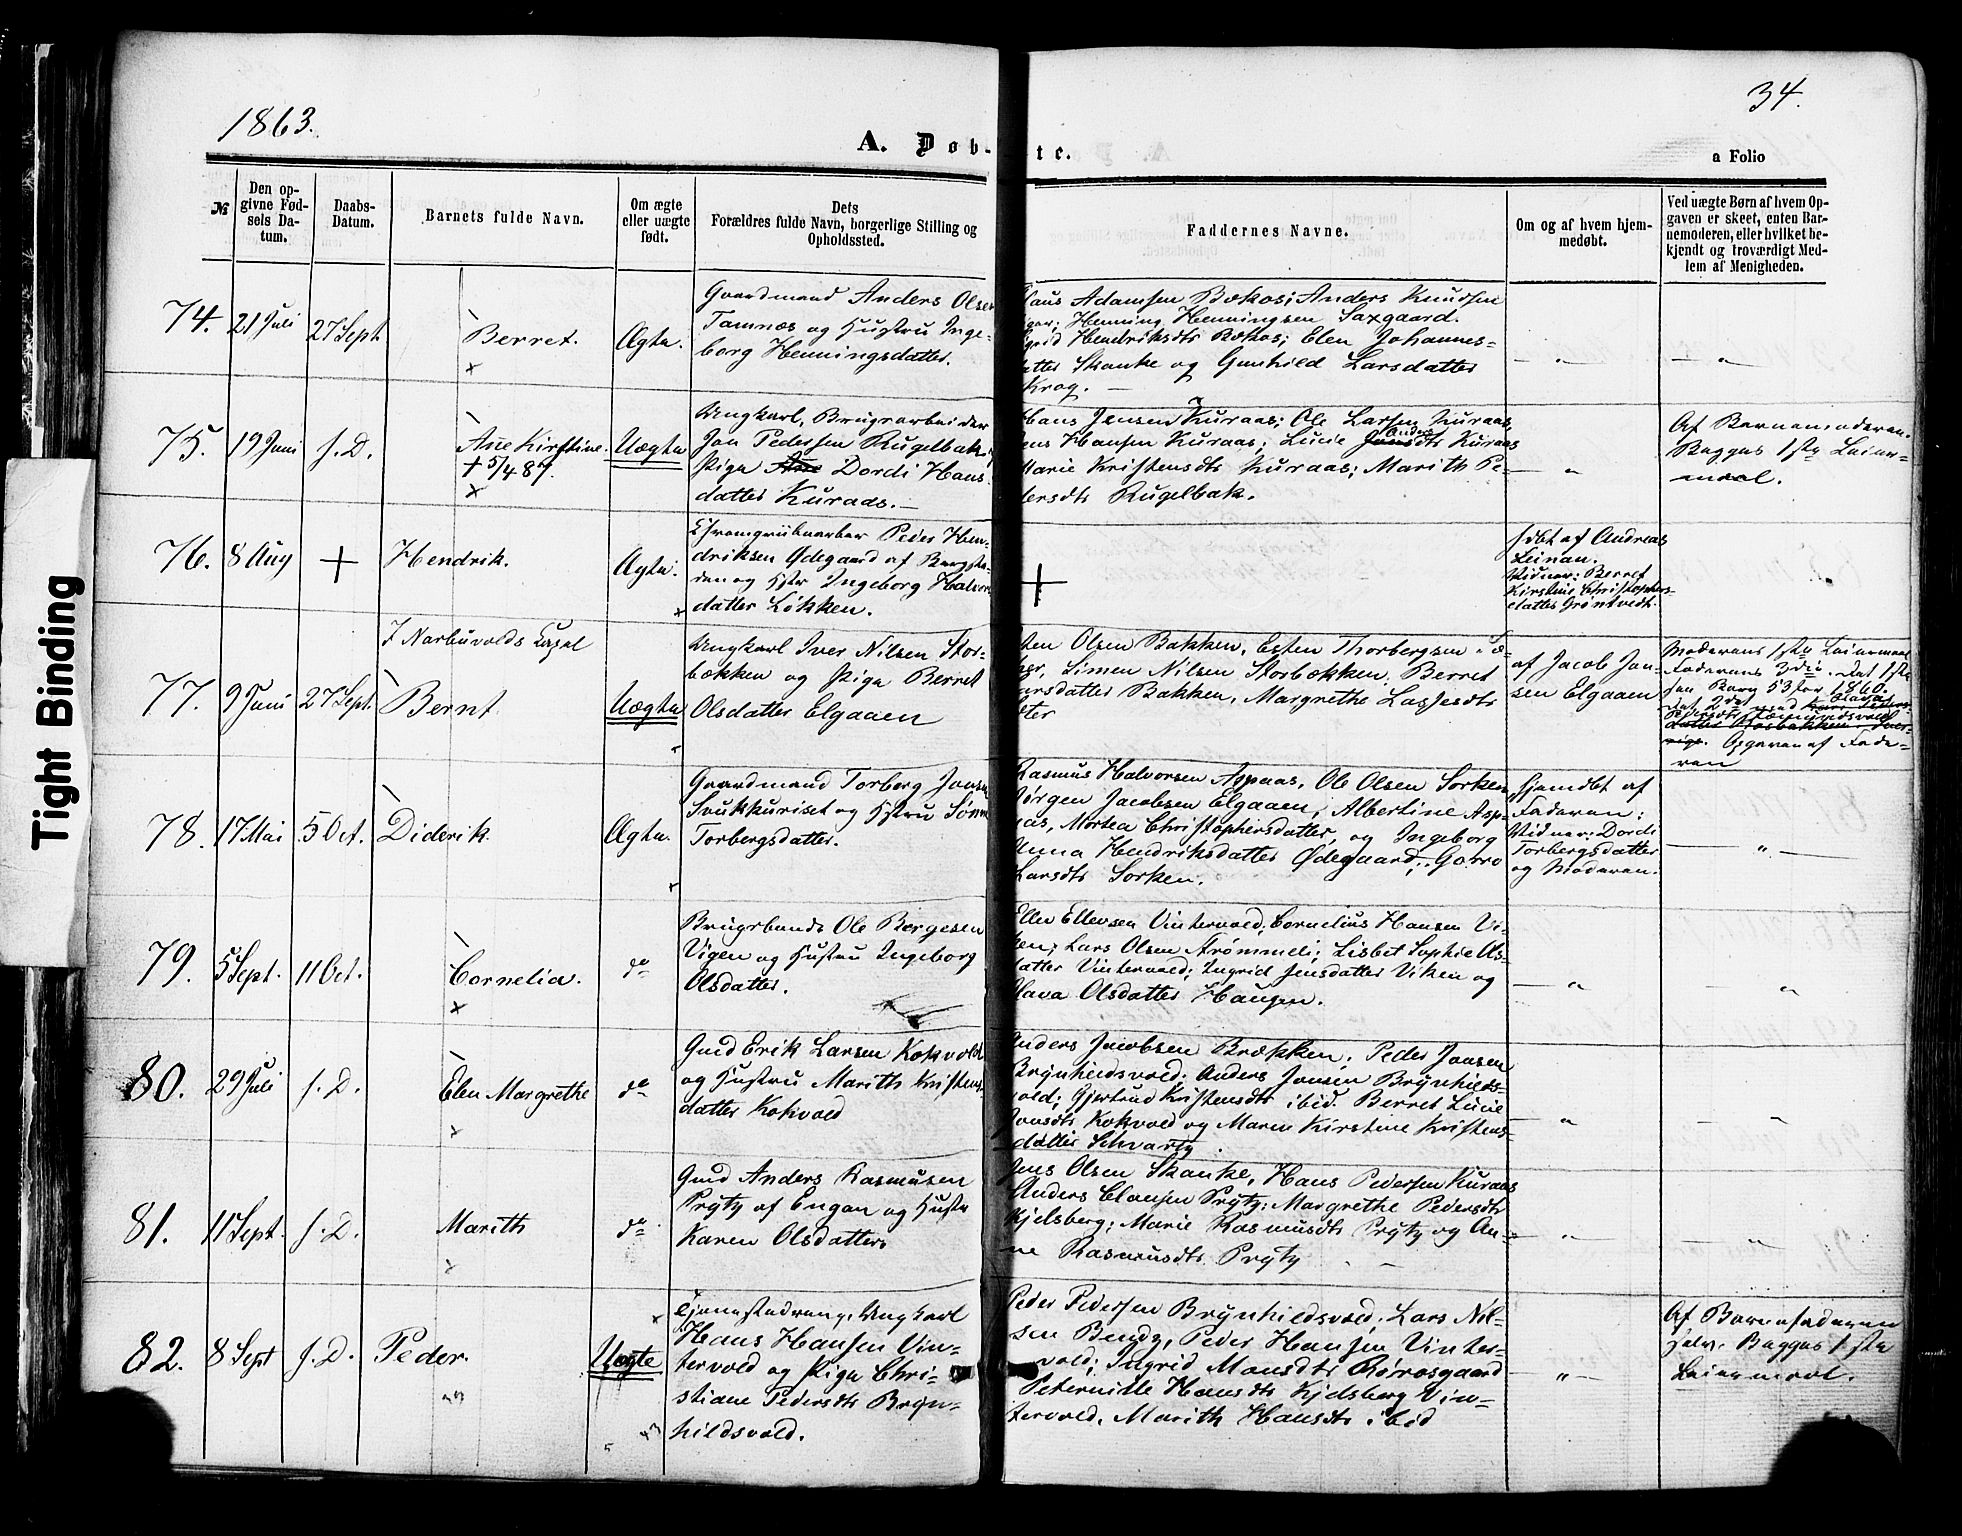 1863.
34.
A. Døb-te.
a Folio
Tight Binding
№
Den op-
givne Fød-
sels Da-
tum.
Daabs-
Datum.
Barnets fulde Navn.
Om ægte
eller uægte
født.
Dets
Forældres fulde Navn, borgerlige Stilling og
Opholdssted.
Faddernes Navne.
Om og af hvem hjem-
medøbt.
Ved uægte Børn af hvem Op-
gaven er skeet, enten Bar-
nemoderen, eller hvilket be-
kjendt og troværdigt Med-
lem af Menigheden.
74. 21 Juli 27 Sept. Berret. Ægte.
Gaardmand Anders Olsen
Tamnæs og Hustru Inge-
borg Henningsdatter.
Claus Adamsen Bækos; Anders Knudsen
Henning Henningsen Saxgaard.
Hendriksdtr Bækos; Elen Johannes-
datter Skanke og Gunhild Larsdatter
Krog. —
— " — — "
75. 19 Juni s. D. Ane Kirstine. Uægte
+ 5/4 87.
Ungkarl, Brugsarbeider
Jon Pedersen Rugelbak
Pige Ane Dordi Hans-
datter Kuraas. —
Hans Jensen Kuraas; Ole Larsen Kuraas,
Jens Hansen Kuraas; Lucie Jonsdtr Kuraas
Marie Kristensdtr Kuraas; Marith Pe-
dersdtr Rugelbak.
— "
Af Barnemoderen.
Begges 1ste Leier-
maal.
76. 8 Aug + Hendrik. Ægte.
Chromgrubearber Peder Hen-
driksen Ødegaard af Bergsta-
den og Hstr Ingeborg Halvors
datter Løkken.
+
hdbt af Andreas
Leinan.
Vidner: Berret
Kirstine Christophers-
datter Grøntvedt.
I Narbuvolds Capel
77. 9 Juni 27 Sept. Bernt Uægte
Ungkarl Iver Nilsen Stor-
bækken og Pige Berret
Olsdatter Elgaaen
Esten Olsen Bakken, Esten Thorbergsen
Simen Nilsen Storbækken, Berret
Larsdatter Bakken, Margrethe Lassesdtr
af Jacob Jon-
sen Elgaaen
Moderens 1ste Leiermaal
Faderens 3die. Det 1ste
53 for 1860.
Opgaven af Fade-
ren
78. 17 Mai 5 Oct. Diderik. Ægte.
Gaardmand Torberg Jonsen
Svukkuriset og Hstru Sønne
Torbergsdatter.
Rasmus Halvorsen Aspaas, Ole Olsen Sorken
Jørgen Jacobsen Elgaaen, Albertine Asp-
aas, Mortea Christophersdatter, og Ingeborg
Anna Hendriksdatter Ødegaard; Gorro
Larsdtr Sorken.
Hjemdbt af
Faderen:
Vidner: Dordi
Torbergsdatter
og Moderen.
— " —
79. 5 Sept. 11 Oct. Cornelia. do
Brugsbonde Ole Børgesen
Vigen og Hustru Ingeborg
Olsdatter.
Ellev Ellevsen Vintervold; Cornelius Hansen Vi-
ken; Lars Olsen Strømmeli; Lisbet Sophie Ols-
datter Vintervold; Ingrid Jensdatter Viken og
Olava Olsdatter Haugen.
— " — "
80. 29 Juli s. D. Elen Margrethe do
Gmd Erik Larsen Kokvold
og Hustru Marith Kristens-
datter Kokvold
Anders Jacobsen Brækken; Peder Jonsen
Brynhildsvold; Anders Jonsen Brynhilds-
vold; Gjertrud Kristensdtr ibid. Berret Lucie
Jonsdtr Kokvold og Maren Kirstine Kristens-
datter Schvartz.
— " — "
81. 11 Sept. s. D. Marith do
Gmd Anders Rasmusen
Prÿtz af Engan og Hustr
Karen Olsdatter.
Jens Olsen Skanke, Hans Pedersen Kuraas
Anders Clausen Prÿtz; Margrethe Pedersdtr
Kjelsberg; Marie Rasmusdtr Prÿtz og An-
ne Rasmusdtr Prÿtz
— " — "
82. 8 Sept s. D. Peder. Uægte
Tjenestedreng, Ungkarl
Hans Hansen Vin-
tervold og Pige Chri-
stiane Pedersdtr Bryn-
hildsvold.
Peder Pedersen Brynhildsvold, Lars Nil-
sen Bendz, Peder Hansen Vinter-
vold; Ingrid Monsdtr Rørosgaard
Peternille Hansdtr Kjelsberg Vin-
tervold, Marith Hansdtr ibid
— " —
Af Barnefaderen
selv. Begges 1ste
Leiermaal.